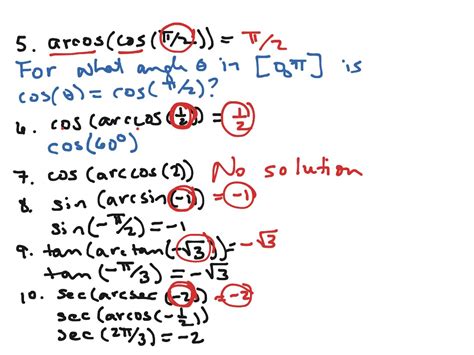 5. arcos(cos(π/2)) = π/2
For what angle θ in [0,π] is
cos(θ) = cos(π/2)?
6. cos(arccos(1/2)) = 1/2
cos(60°)
7. cos(arccos(2)) No solution
8. sin(arcsin(-1)) = -1
sin(-π/2) = -1
9. tan(arctan(-√3)) = -√3
tan(-π/3) = -√3
10. sec(arcsec(-2)) = -2
sec(arcos(-1/2))
sec(2π/3) = -2